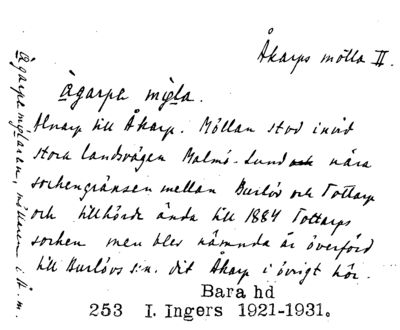 Åkarps mölla II.
ågarpe migla.
Alnarp till Åkarp. Möllan stod invid
stora landsvägen Malmö-Lund och nära
sockengränsen mellan Burlöv och Tottarp
och tillhörde ända till 1884 Tottarps
socken men blev nämnda år överförd
till Burlövs s:n. dit Åkarp i övrigt hör.
Bara hd
253 I. Ingers 1921-1931.
ågarpamiglaren, möllaren i Å. m.